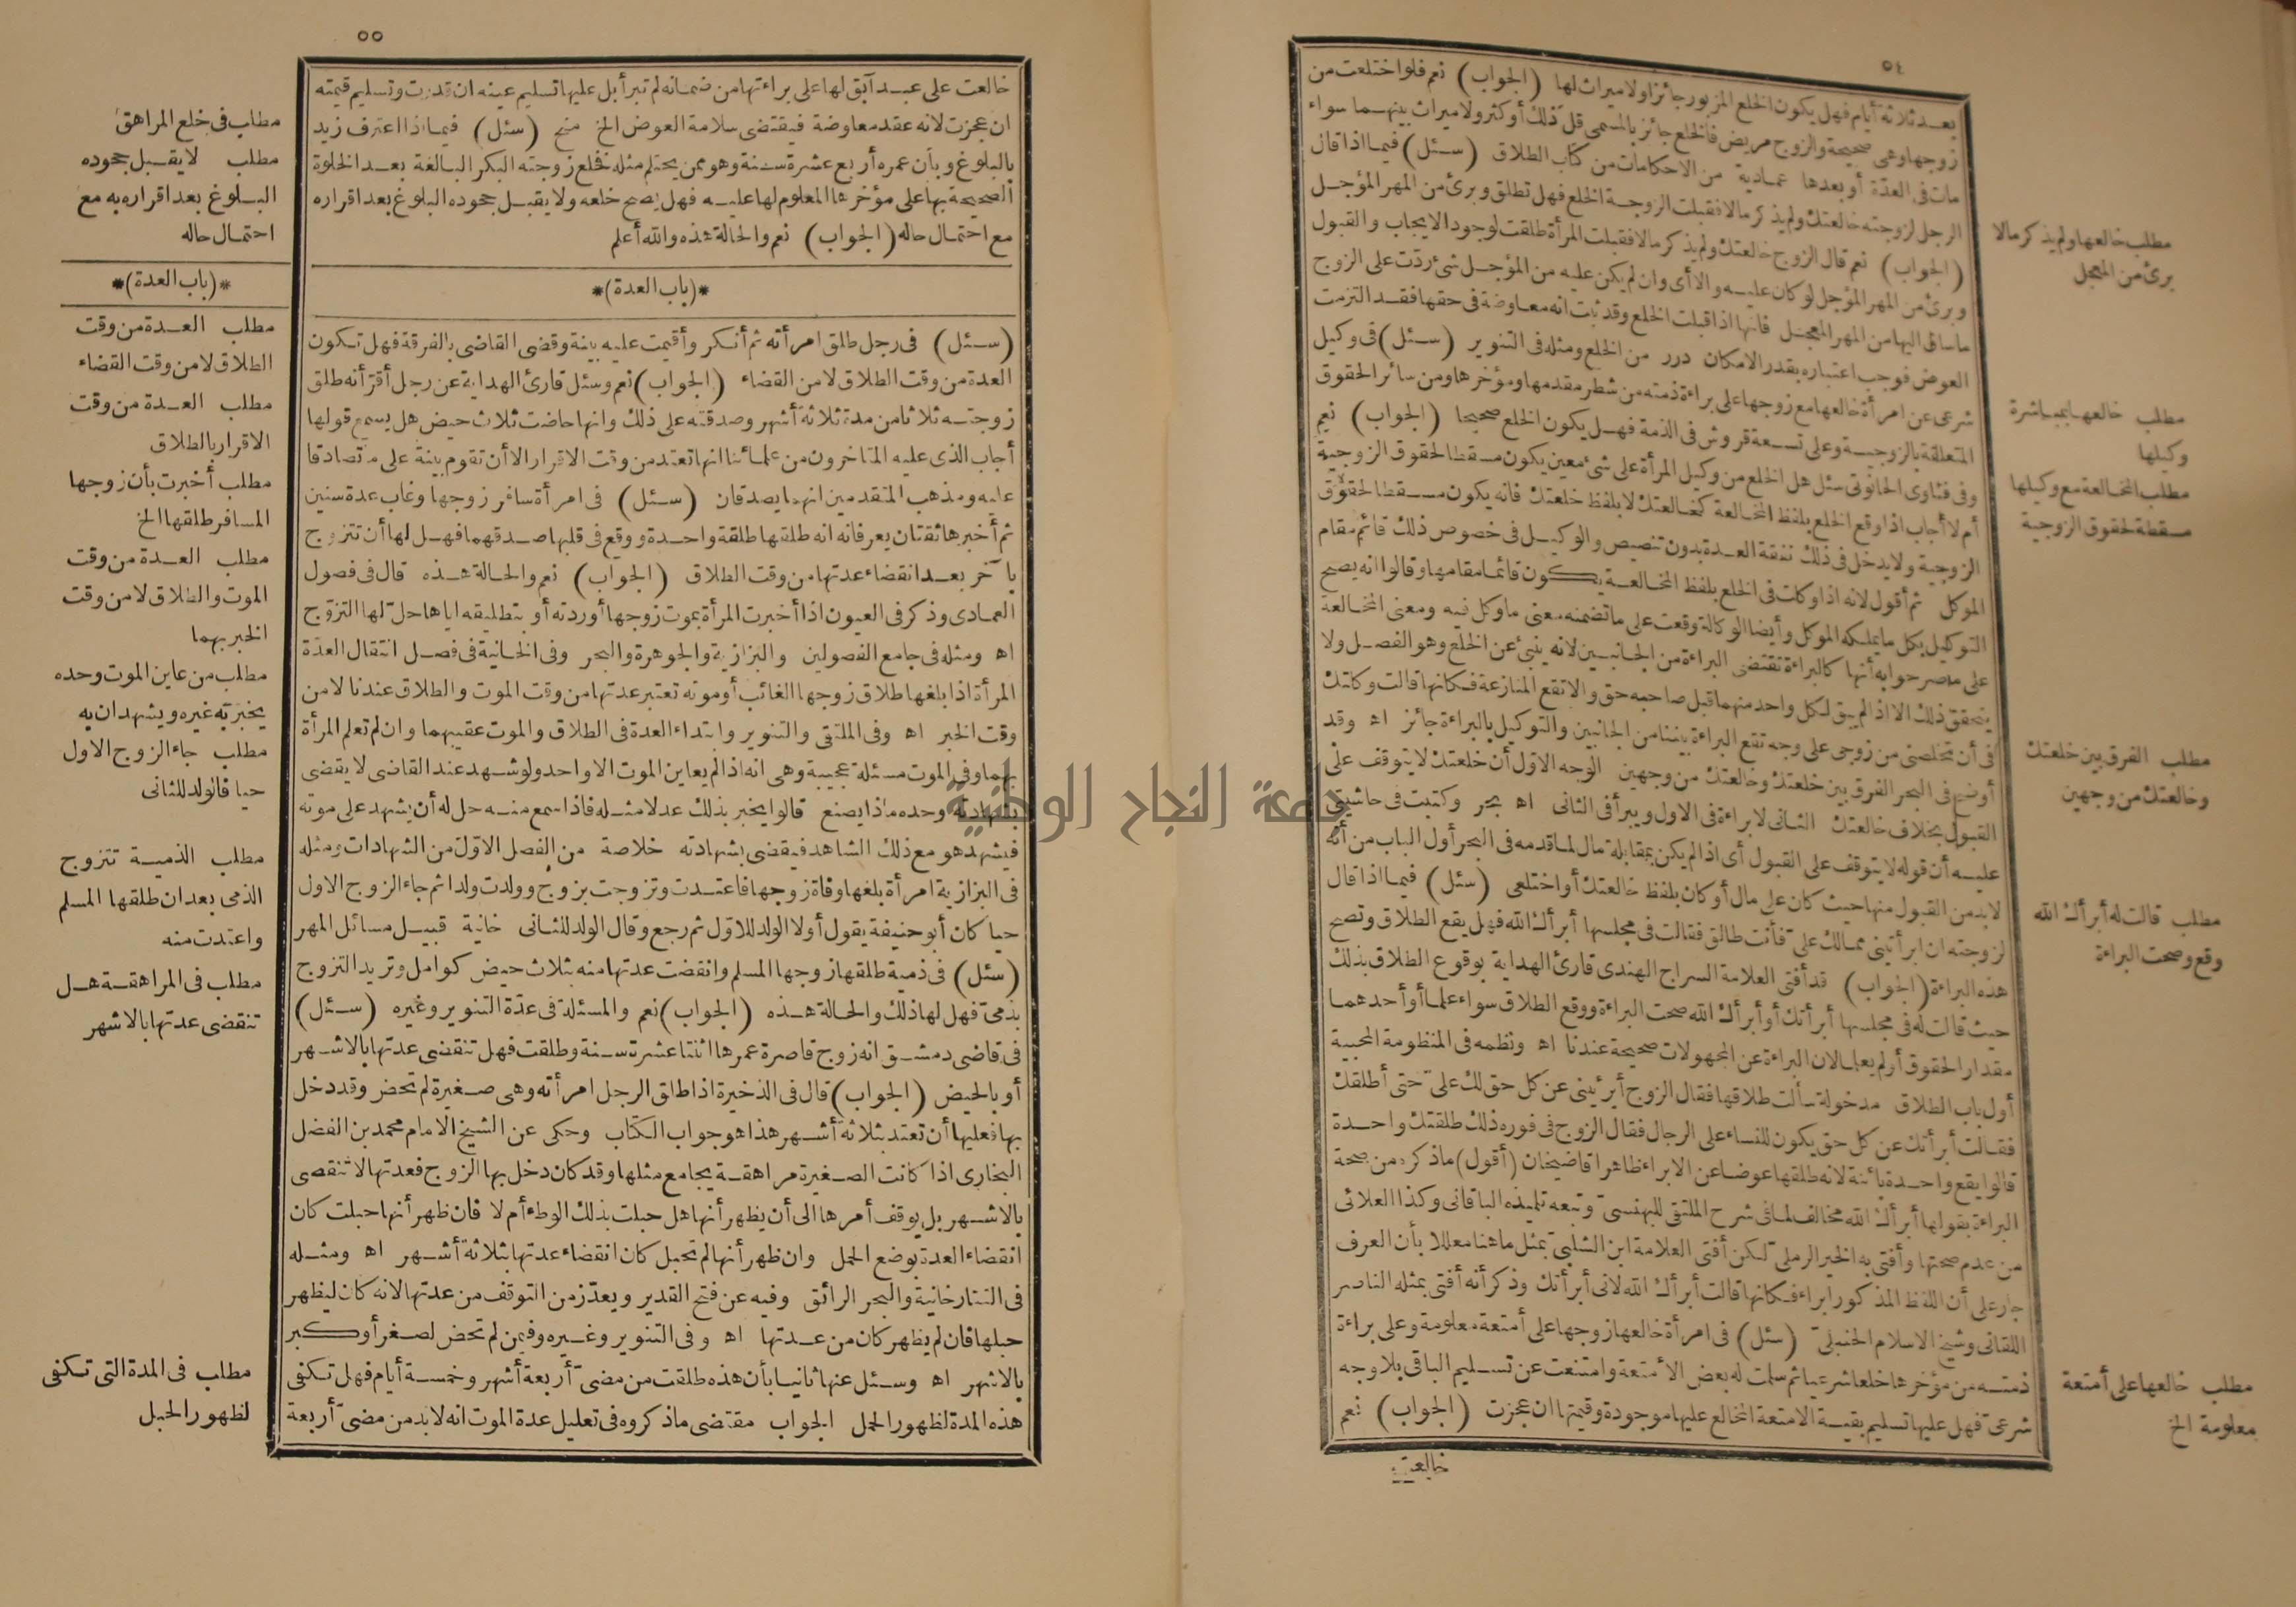 ٥٤
بعد ثلاثة أيام فهل يكون الخلع المزبور جائزا ولا ميراث لها (الجواب) نعم فلو اختلعت من
زوجها وهى صحيحة والزوج مريض فالخلع جائز بالمسمى قل ذلك أو كثر ولا ميراث بينهما سواء
مات فى العدّة أو بعدها عمادية من الاحكامات من كتاب الطلاق (سئل) فيما اذا قال
الرجل لزوجته خالعتك ولم يذكر مالا فقبلت الزوجة الخلع فهل تطلق وبرئ من المهر المؤجل
(الجواب) نعم قال الزوج خالعتك ولم يذكر مالا فقبلت المرأة طلقت لوجود الايجاب والقبول
وبرئ من المهر المؤجل لو كان عليه والا أى وان لم يكن عليه من المؤجل شئ ردّت على الزوج
ماساق اليها من المهر المعجل فانها اذا قبلت الخلع وقد ثبت انه معاوضة فى حقها فقد التزمت
العوض فوجب اعتباره بقدر الامكان درر من الخلع ومثله فى التنوير (سئل) فى وكيل
شرعى عن امرأة خالعها مع زوجها على براءة ذمته من شطر مقدمها ومؤخرها ومن سائر الحقوق
المتعلقة بالزوجية وعلى تسعة قروش فى الذمة فهل يكون الخلع صحيحا (الجواب) نعم
وفى فتاوى الحانوتى سئل هل الخلع من وكيل المرأة على شئ معين يكون مسقطا لحقوق الزوجية
أم لا أجاب اذا وقع الخلع بلفظ المخالعة كخالعتك لا بلفظ خلعتك فانه يكون مسقطا لحقوق
الزوجية ولا يدخل فى ذلك نفقة العدة بدون تنصيص والوكيل فى خصوص ذلك قائم مقام
الموكل ثم أقول لانه اذا وكلت فى الخلع بلفظ المخالعة يكون قائما مقامها وقالوا انه يصح
التوكيل بكل ما يملكه الموكل وأيضا الوكالة وقعت على ما تضمنه معنى ما وكل فيه ومعنى المخالعة
على ما صرحوا به أنها كالبراءة تقتضى البراءة من الجانبين لانه ينبئ عن الخلع وهو الفصل ولا
يتحقق ذلك الا اذا لم يبق لكل واحد منهما قبل صاحبه حق والا تقع المنازعة فكانها قالت وكلتك
فى أن تخلصنى من زوجى على وجه تقع البراءة بيننا من الجانبين والتوكيل بالبراءة جائز اه وقد
أوضح فى البحر الفرق بين خلعتك وخالعتك من وجهين الوجه الاول أن خلعتك لا يتوقف على
القبول بخلاف خالعتك الثانى لا براءة فى الاول ويبرأ فى الثانى اه بحر وكتبت فى حاشيتى
عليه أن قوله لا يتوقف على القبول أى اذا لم يكن بمقابلة مال لما قدمه فى البحر أول الباب من أنه
لا بد من القبول منها حيث كان على مال أو كان بلفظ خالعتك أو اختلعى (سئل) فيما اذا قال
لزوجته ان ابرأتينى ممالك علىّ فأنت طالق فقالت فى مجلسها أبرأك الله فهل يقع الطلاق وتصح
هذه البراءة (الجواب) قد أفتى العلامة السراج الهندى قارئ الهداية بوقوع الطلاق بذلك
حيث قالت له فى مجلسها أبرأتك أو أبرأك الله صحت البراءة ووقع الطلاق سواء علما أو أحدهما
مقدار الحقوق أو لم يعلما لان البراءة عن المجهولات صحيحة عندنا اه ونظمه فى المنظومة المحبية
أول باب الطلاق مدخولة سألت طلاقها فقال الزوج أبرئينى عن كل حق لك علىّ حتى أطلقك
فقالت أبرأتك عن كل حق يكون للنساء على الرجال فقال الزوج فى فوره ذلك طلقتك واحدة
قالوا يقع واحدة بائنة لانه طلقها عوضا عن الابراء ظاهرا قاضيخان (أقول) ما ذكره من صحة
البراءة بقولها أبرأك الله مخالف لما فى شرح الملتقى للبهنسىّ وتبعه تلميذه الباقانى وكذا العلائى
من عدم صحتها وأفتى به الخير الرملىّ لكن أفتى العلامة ابن الشلبىّ بمثل ما هنا معللا بأن العرف
جار على أن اللفظ المذكور ابراء فكانها قالت أبرأك الله لانى أبرأتك وذكر أنه أفتى بمثله الناصر
اللقانى وشيخ الاسلام الحنبلىّ (سئل) فى امرأة خالعها زوجها على أمتعة معلومة وعلى براءة
ذمته من مؤخرها خلعا شرعيا ثم سلمت له بعض الأمتعة وامتنعت عن تسليم الباقى بلا وجه
شرعىّ فهل عليها تسليم بقية الامتعة المخالع عليها موجودة وقيمتها ان عجزت (الجواب) نعم
خالعت
مطلب خالعها ولم يذكر مالا
برئ من المعجل
مطلب خالعها بمباشرة
وكيلها
مطلب المخالعة مع وكيلها
مسقطة لحقوق الزوجية
مطلب الفرق بين خلعتك
وخالعتك من وجهين
مطلب قالت له أبرأك الله
وقع وصحت البراءة
مطلب خالعها على أمتعة
معلومة الخ
٥٥
خالعت على عبد آبق لها على براءتها من ضمانه لم تبرأ بل عليها تسليم عينه ان قدرت وتسليم قيمته
ان عجزت لانه عقد معاوضة فيقتضى سلامة العوض الخ منح (سئل) فيما اذا اعترف زيد
بالبلوغ وبأن عمره أربع عشرة سنة وهو ممن يحتلم مثله فخلع زوجته البكر البالغة بعد الخلوة
الصحيحة بها على مؤخرها المعلوم لها عليه فهل يصح خلعه ولا يقبل جحوده البلوغ بعد اقراره
مع احتمال حاله (الجواب) نعم والحالة هذه والله أعلم
*(باب العدة)*
(سئل) فى رجل طلق امرأته ثم أنكر وأقيمت عليه بينة وقضى القاضى بالفرقة فهل تكون
العدة من وقت الطلاق لا من القضاء (الجواب) نعم وسئل قارئ الهداية عن رجل أقرّ أنه طلق
زوجته ثلاثا من مدة ثلاثة أشهر وصدقته على ذلك وانها حاضت ثلاث حيض هل يسمع قولها
أجاب الذى عليه المتاخرون من علمائنا انها تعتد من وقت الاقرار الا أن تقوم بينة على ما تصادقا
عليه ومذهب المتقدمين انهما يصدقان (سئل) فى امرأة سافر زوجها وغاب عدة سنين
ثم أخبرها ثقتان يعرفانه انه طلقها طلقة واحدة ووقع فى قلبها صدقهما فهل لها أن تتزوج
بآخر بعد انقضاء عدتها من وقت الطلاق (الجواب) نعم والحالة هذه قال فى فصول
العمادى وذكر فى العيون اذا أخبرت المرأة بموت زوجها أو ردته أو بتطليقه اياها حلّ لها التزوّج
اه ومثله فى جامع الفصولين والبزازية والجوهرة والبحر وفى الخانية فى فصل انتقال العدّة
المرأة اذا بلغها طلاق زوجها الغائب أو موته تعتبر عدتها من وقت الموت والطلاق عندنا لا من
وقت الخبر اه وفى الملتقى والتنوير وابتداء العدة فى الطلاق والموت عقيبهما وان لم تعلم المرأة
بهما وفى الموت مسئلة عجيبة وهى انه اذا لم يعاين الموت الا واحد ولو شهد عند القاضى لا يقضى
بشهادته وحده ماذا يصنع قالوا يخبر بذلك عدلا مثله فاذا سمع منه حل له أن يشهد على موته
فيشهد هو مع ذلك الشاهد فيقضى بشهادته خلاصة من الفصل الاوّل من الشهادات ومثله
فى البزازية امرأة بلغها وفاة زوجها فاعتدت وتزوجت بزوج وولدت ولدا ثم جاء الزوج الاول
حيا كان أبو حنيفة يقول أولا الولد للاوّل ثم رجع وقال الولد للثانى خانية قبيل مسائل المهر
(سئل) فى ذمية طلقها زوجها المسلم وانقضت عدتها منه بثلاث حيض كوامل وتريد التزوج
بذمىّ فهل لها ذلك والحالة هذه (الجواب) نعم والمسئلة فى عدّة التنوير وغيره (سئل)
فى قاضى دمشق انه زوج قاصرة عمرها اثنتا عشرة سنة وطلقت فهل تنقضى عدتها بالاشهر
أو بالحيض (الجواب) قال فى الذخيرة اذا طلق الرجل امرأته وهى صغيرة لم تحض وقد دخل
بها فعليها أن تعتد بثلاثة أشهر هذا هو جواب الكتاب وحكى عن الشيخ الامام محمد بن الفضل
البخارى اذا كانت الصغيرة مراهقة يجامع مثلها وقد كان دخل بها الزوج فعدتها لا تنقضى
بالاشهر بل يوقف أمرها الى أن يظهر أنها هل حبلت بذلك الوطء أم لا فان ظهر أنها حبلت كان
انقضاء العدة بوضع الحمل وان ظهر أنها لم تحبل كان انقضاء عدتها بثلاثة أشهر اه ومثله
فى التتارخانية والبحر الرائق وفيه عن فتح القدير ويعدّ زمن التوقف من عدتها لانه كان ليظهر
حبلها فان لم يظهر كان من عدتها اه وفى التنوير وغيره وفيمن لم تحض لصغر أو كبر
بالاشهر اه وسئل عنها ثانيا بأن هذه طلقت من مضىّ أربعة أشهر وخمسة أيام فهل تكفى
هذه المدة لظهور الحمل الجواب مقتضى ما ذكروه فى تعليل عدة الموت انه لا بد من مضىّ أربعة
مطلب فى خلع المراهق
مطلب لا يقبل جحوده
البلوغ بعد اقراره به مع
احتمال حاله
*(باب العدة)*
مطلب العدة من وقت
الطلاق لا من وقت القضاء
مطلب العدة من وقت
الاقرار بالطلاق
مطلب أخبرت بأن زوجها
المسافر طلقها الخ
مطلب العدة من وقت
الموت والطلاق لا من وقت
الخبر بهما
مطلب من عاين الموت وحده
يخبر به غيره ويشهدان به
مطلب جاء الزوج الاول
حيا فالولد للثانى
مطلب الذمية تتزوج
الذمى بعد ان طلقها المسلم
واعتدت منه
مطلب فى المراهقة هل
تنقضى عدتها بالاشهر
مطلب فى المدة التى تكفى
لظهور الحبل
جامعة النجاح الوطنية